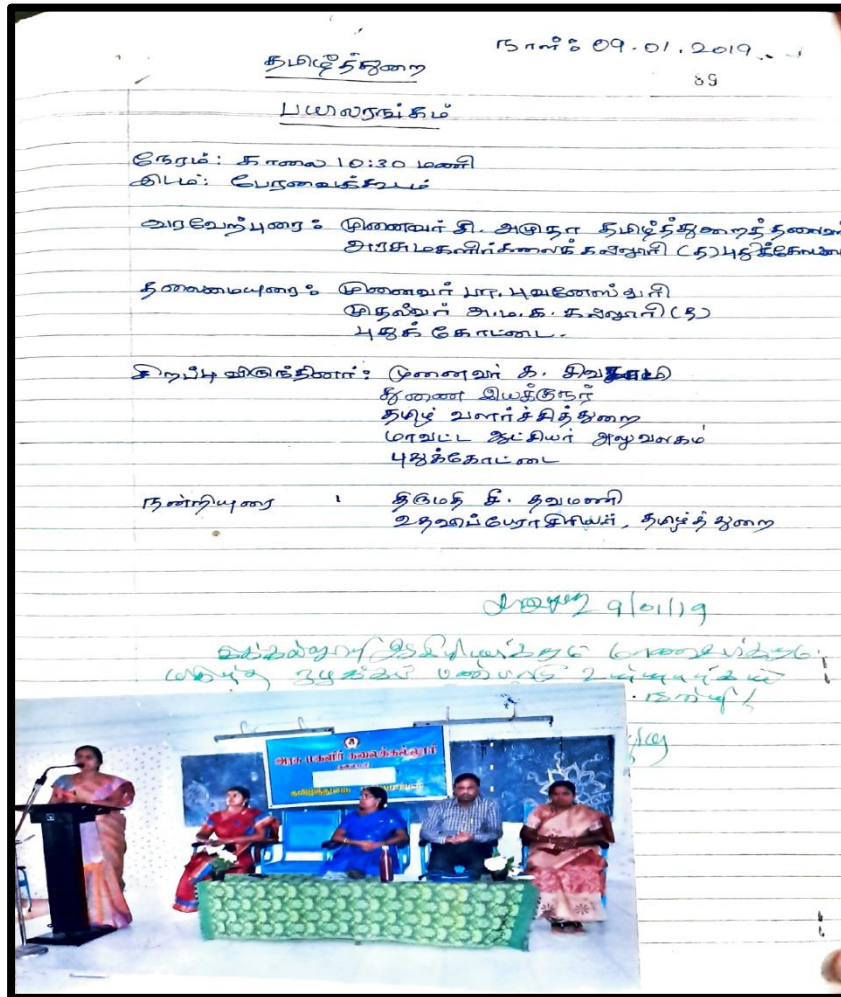 நாள்: 09.01.2019
தமிழ்த்துறை
89
பயிலரங்கம்
நேரம்: காலை 10:30 மணி
இடம்: பேரவைக்கூடம்
வரவேற்புரை: முனைவர் சி. அமுதா தமிழ்த்துறைத்தலைவர்
அரசு மகளிர் கலைக் கல்லூரி (த) புதுக்கோட்டை
தலைமையுரை: முனைவர் பா. புவனேஸ்வரி
முதல்வர் அ.ம.க. கல்லூரி (த)
புதுக்கோட்டை.
சிறப்பு விருந்தினர்: முனைவர் க.
துணை இயக்குநர்
தமிழ் வளர்ச்சித்துறை
மாவட்ட ஆட்சியர் அலுவலகம்
புதுக்கோட்டை
நன்றியுரை : திருமதி சீ. தவமணி
உதவிப்பேராசிரியர், தமிழ்த்துறை
9/01/19
நன்றி!
அரசு மகளிர் கலைக்கல்லூரி
தமிழ்த்துறை